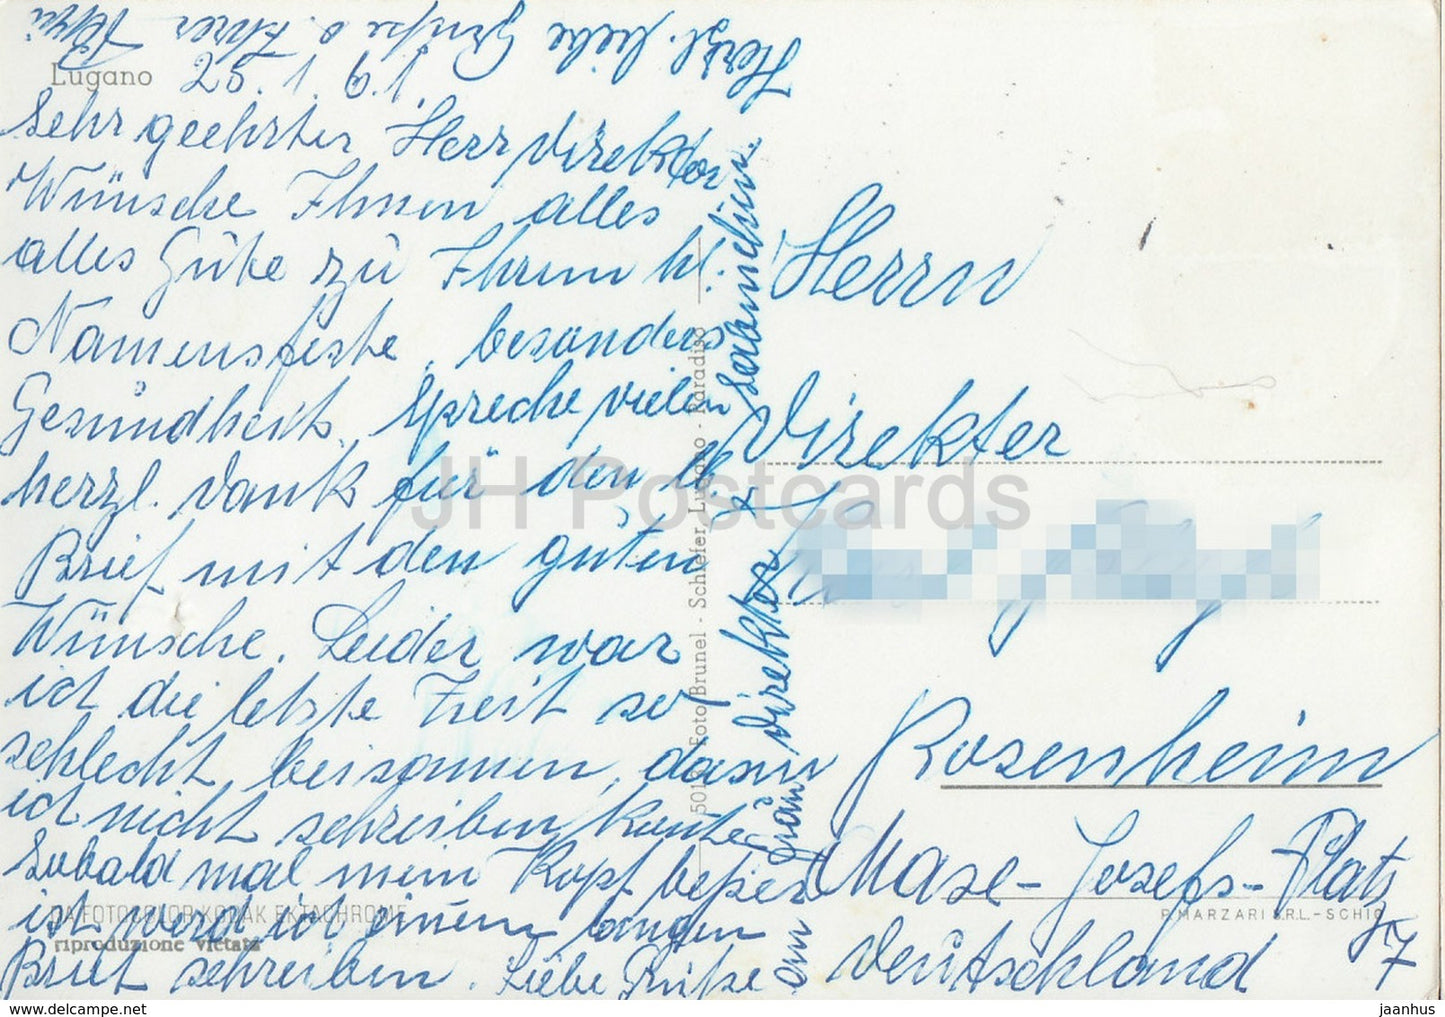 Lugano 25.1.61.
Sehr geehrter Herr Direktor
Wünsche Ihnen alles
alles Gute zu Ihrem hl.
Namensfeste, besonders
Gesundheit. Spreche vielen
herzl. Dank für den lb.
Brief mit den guten
Wünsche. Leider war
ich die letzte Zeit so
schlecht beisamen, dasn
ich nicht schreiben konte
Sobald mal mein Kopf beßer
ist werd ich einen langen
Brief schreiben. Liebe Grüße
an Frau Direkter
Herzl. liebe Grüße v. Ihrer
Herrn
Direkter
Rosenheim
Maxe-Josefs-Platz
7
Deutschland
5018 Foto Brunel - Schiefer, Lugano - Paradiso
DA FOTOCOLOR KODAK EKTACHROME
riproduzione vietata
P. MARZARI S.R.L. - SCHIO
JH Postcards
jaanhus